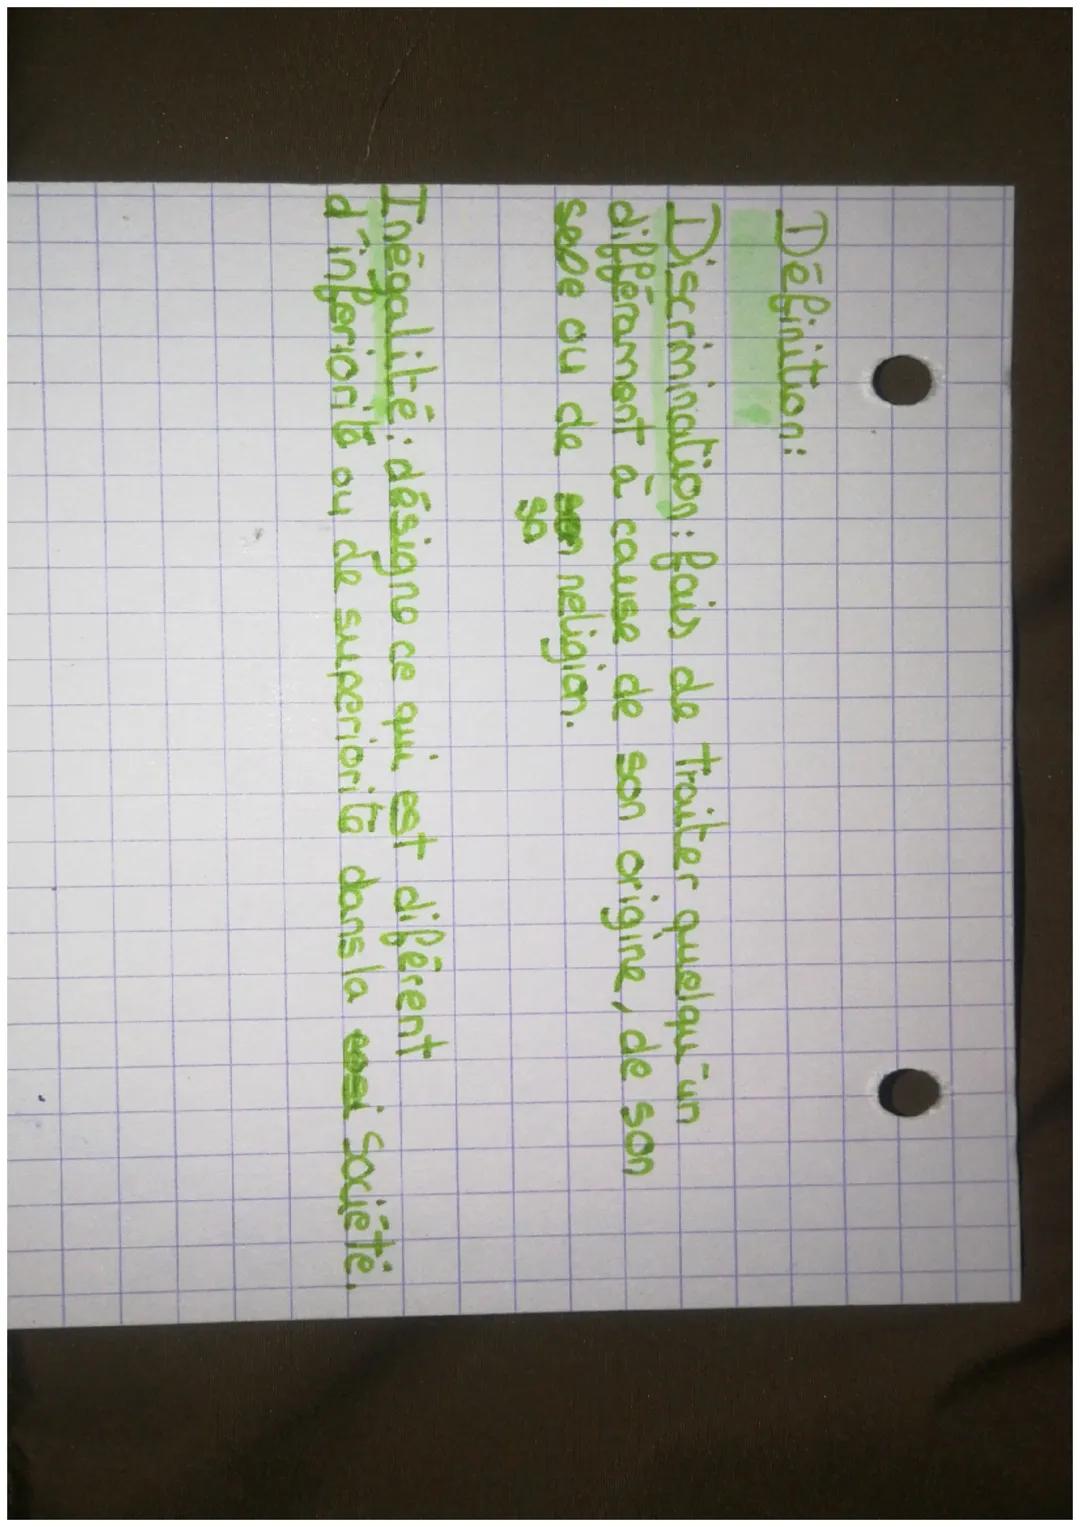 Définition:
Discrimination: fais de traiter quelqu'un
différament à cause de son origine, de son
sexe ou de religion.
sa
Inégalité: désigne ce qui est diférent
d'inferiorité ou de superiorité dans la société.